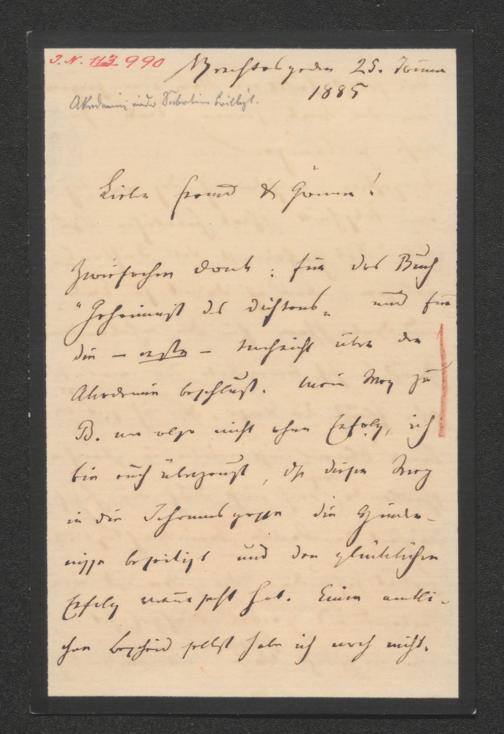 I. N. 113.990
25. Januar
1885
Akademie
Lieber Freund & Gönner!
Zweifachen Dank: für das Buch
"Geheimniß des Dichtens" und für
die – erste – Nachricht über den
Akademie beschluß. Mein Weg zu
B. war also nicht ohne Erfolg, ich
bin auch überzeugt, daß dieser Weg
in die Johannesgasse die Hinder-
nisse beseitigt und den glücklichen
Erfolg verursacht hat. Einen amtli-
chen Bescheid selbst habe ich noch nicht.